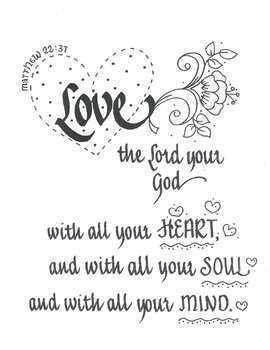 matthew 22:37
Love
the Lord your
God
with all your HEART,
and with all your SOUL
and with all your MIND.